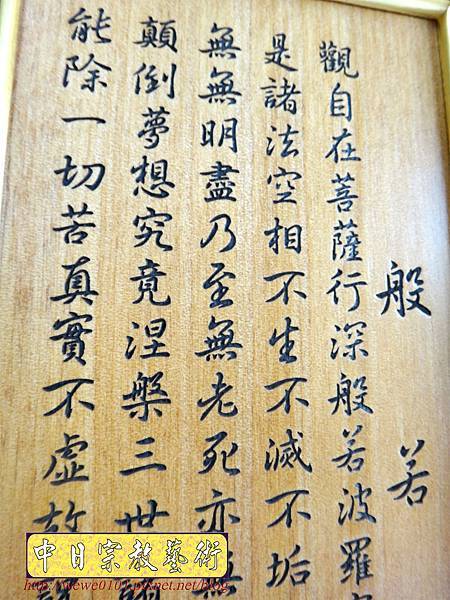 般若
觀自在菩薩行深般若波羅
是諸法空相不生不滅不垢
無無明盡乃至無老死亦
顛倒夢想究竟涅槃三世
能除一切苦真實不虛故
中日宗教藝術